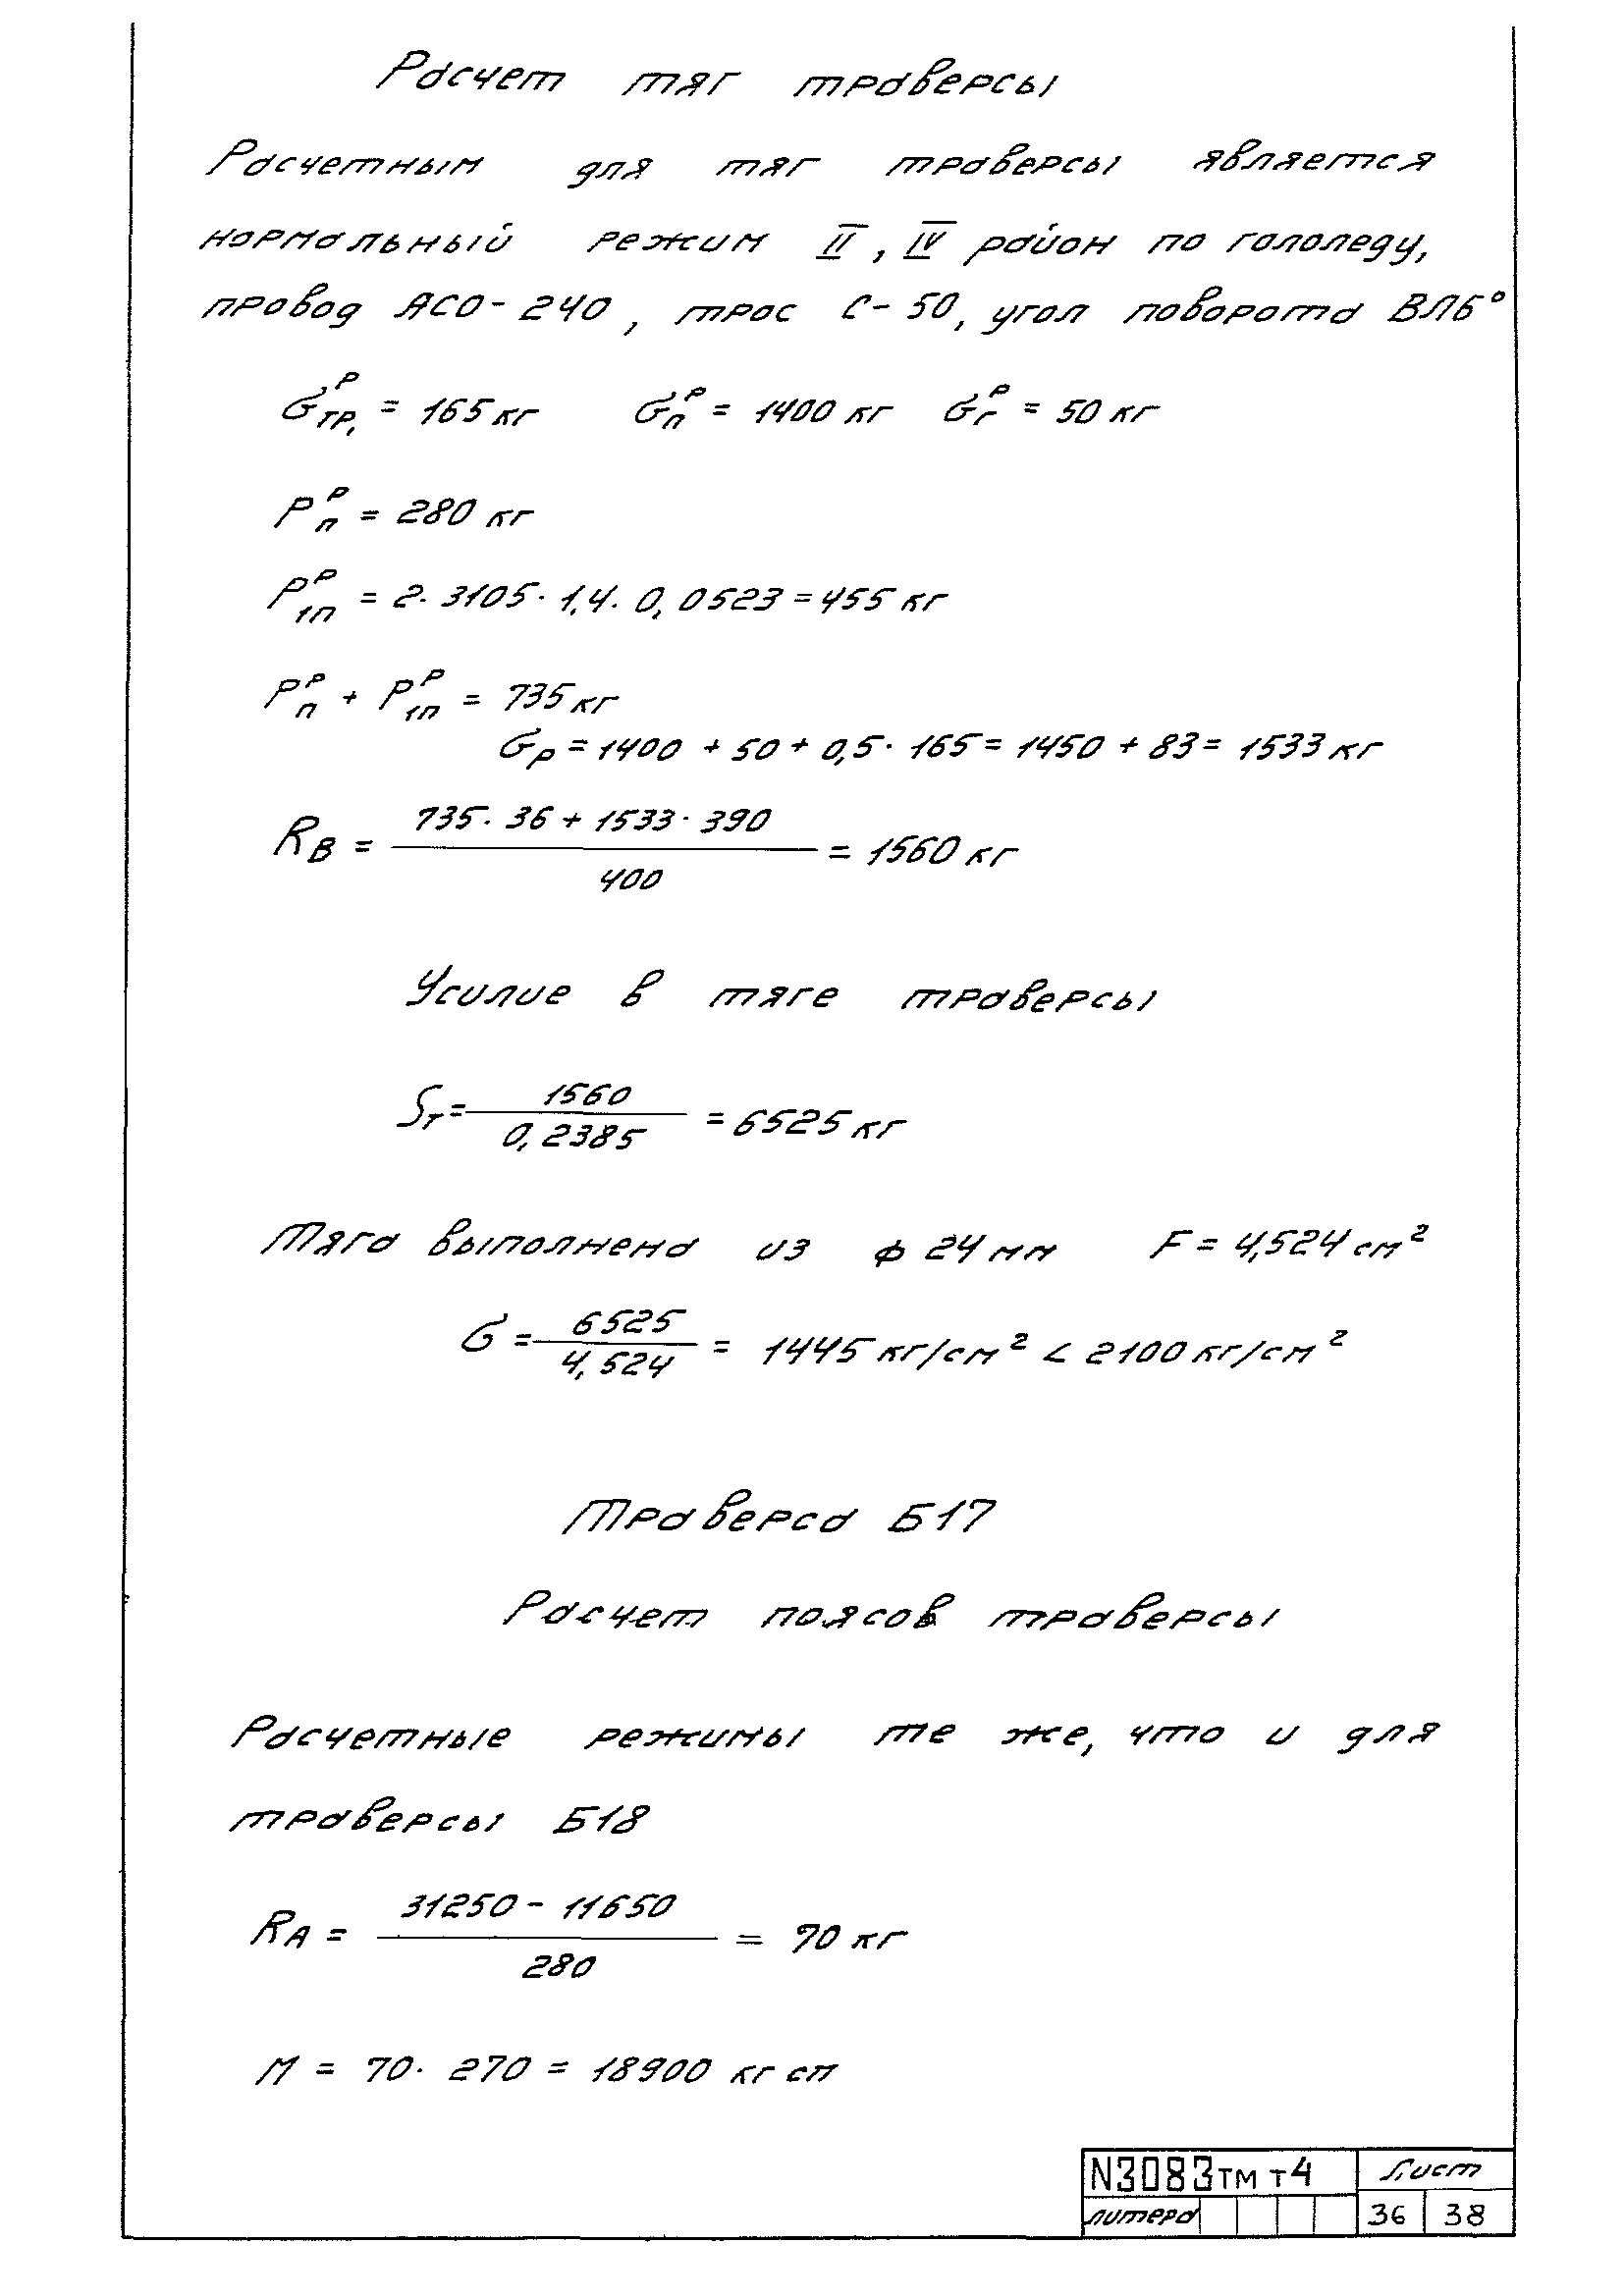 Расчет тяг траверсы
Расчетным для тяг траверсы является
нормальный режим II, IV район по гололеду,
провод АСО-240, трос С-50, угол поворота ВЛ6°
G^Р_ТР. = 165 кг G^Р_П = 1400 кг G^Р_Г = 50 кг
P^Р_П = 280 кг
P^Р_1П = 2·3105·1,4·0,0523 = 455 кг
P^Р_П + P^Р_1П = 735 кг
G_Р = 1400 + 50 + 0,5·165 = 1450 + 83 = 1533 кг
R_В = (735·36 + 1533·390) / 400 = 1560 кг
Усилие в тяге траверсы
S_Т = 1560 / 0,2385 = 6525 кг
Тяга выполнена из ф 24 мм F = 4,524 см²
G = 6525 / 4,524 = 1445 кг/см² < 2100 кг/см²
Траверса Б17
Расчет поясов траверсы
Расчетные режимы те же, что и для
траверсы Б18
R_А = (31250 - 11650) / 280 = 70 кг
М = 70·270 = 18900 кг см
N3083ТМ Т4 Лист
литера 36 38